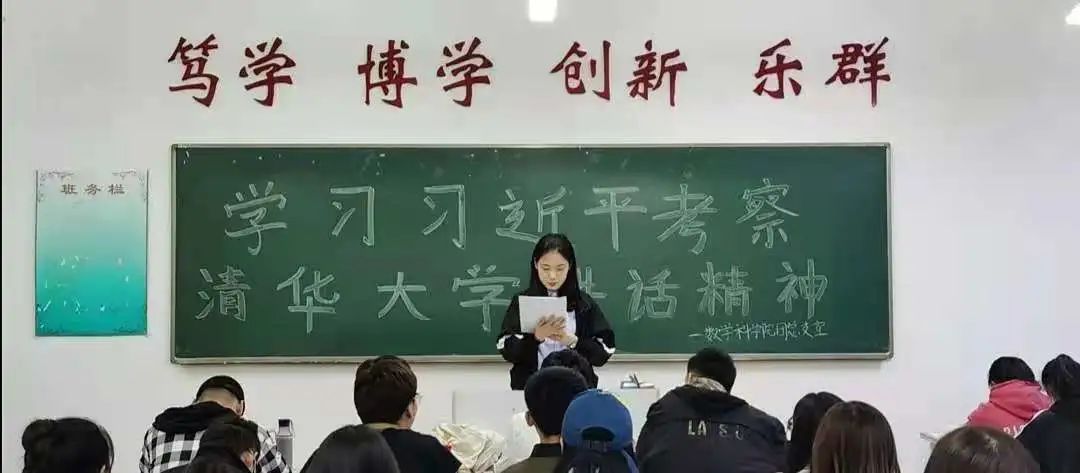 笃学 博学 创新 乐群
班务栏
学习习近平考察
清华大学讲话精神
数学科学院团总支宣
LA